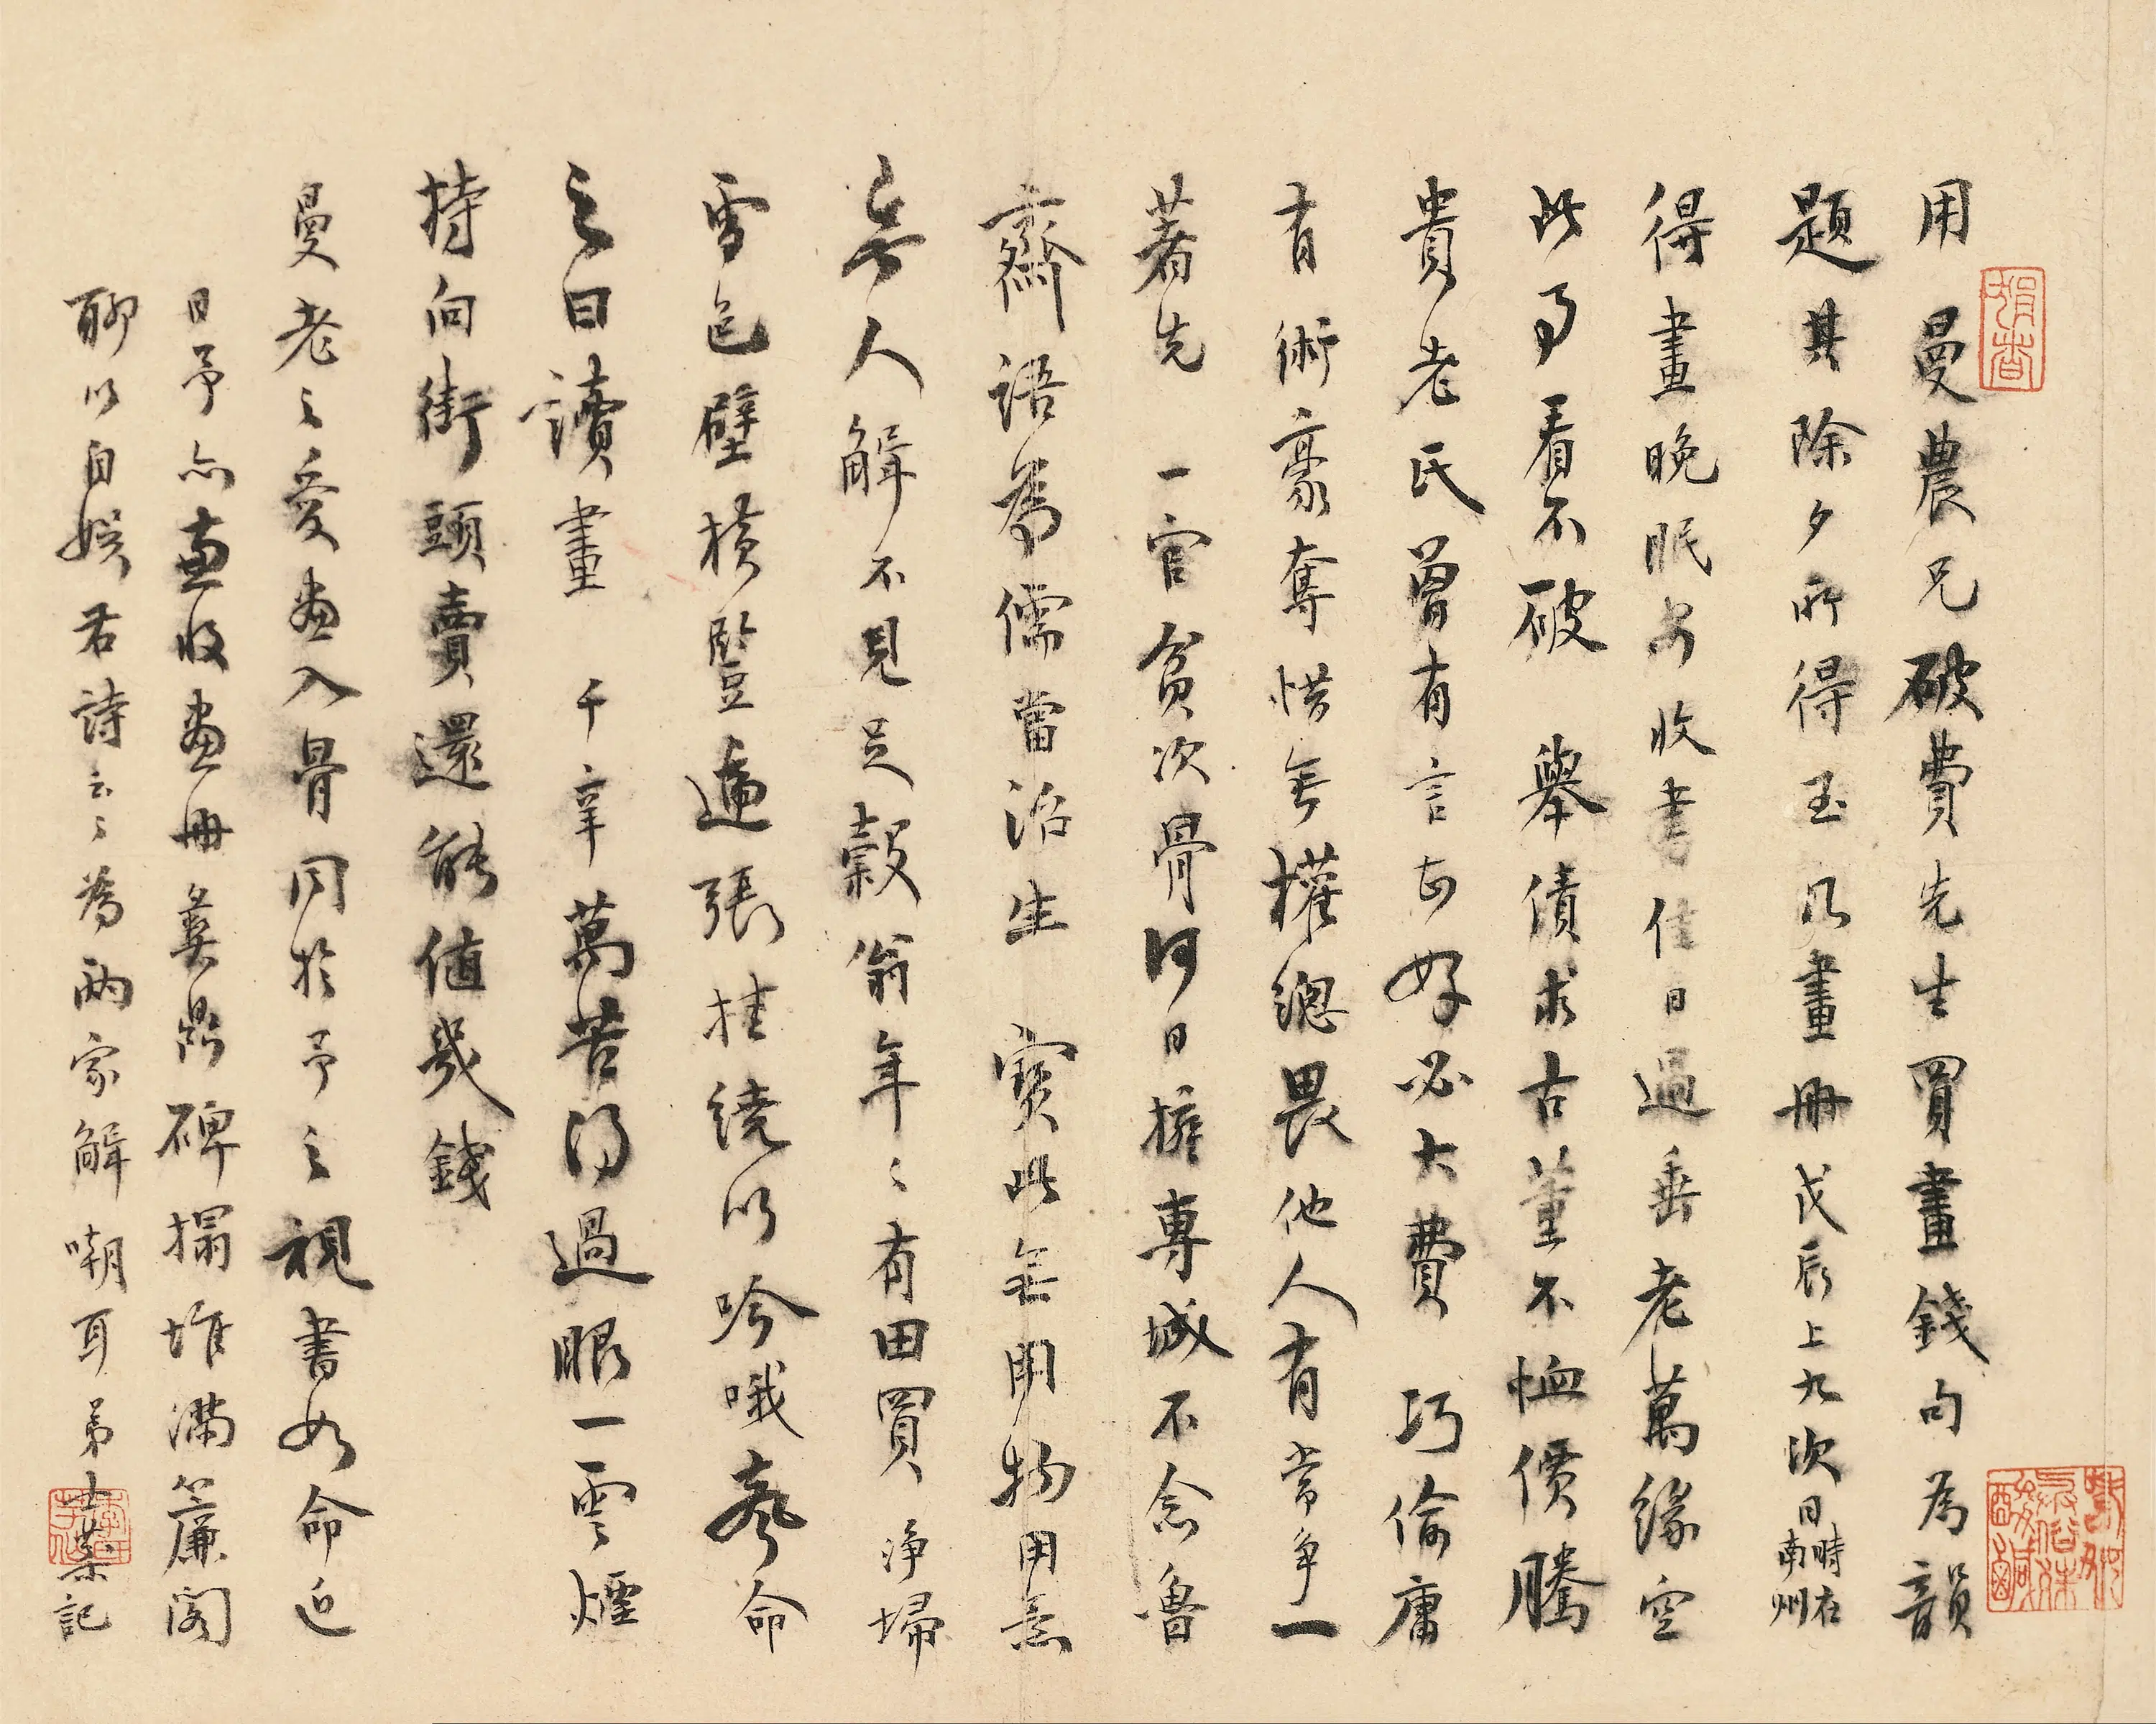 用曼農兄破費先生買畫錢句為韻
題其除夕所得玉几畫冊戊辰上九次日時在南州
得畫晚眠安收書佳日過垂老萬緣空
此事看不破 舉債求古董不恤價騰
貴老氏曾有言甚好必大費 巧偷庸
有術豪奪惜無權總畏他人有常爭一
著先 一官貧次骨何日擁專城不念魯
齋語為儒當治生 寶此無用物用意
無人解不見足穀翁年々有田買 淨掃
雪色壁橫豎遍張挂繞以吟哦聲命
之曰讀畫 千辛萬苦得過眼一雲煙
持向街頭賣還能值幾錢
曼老之愛畫入骨同於予之視書如命近
日予亦兼收畫冊彝鼎碑搨堆滿簾閣
聊以自娛君詩云云為兩家解嘲耳弟士棻記